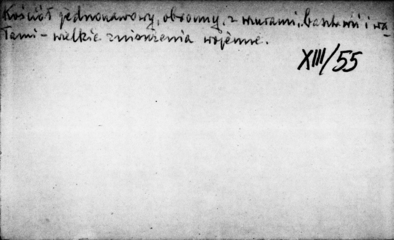 Kościół jednonawowy, obronny, z murami, basztami i wa-
łami - wielkie zniszczenia wojenne.
XIII/55